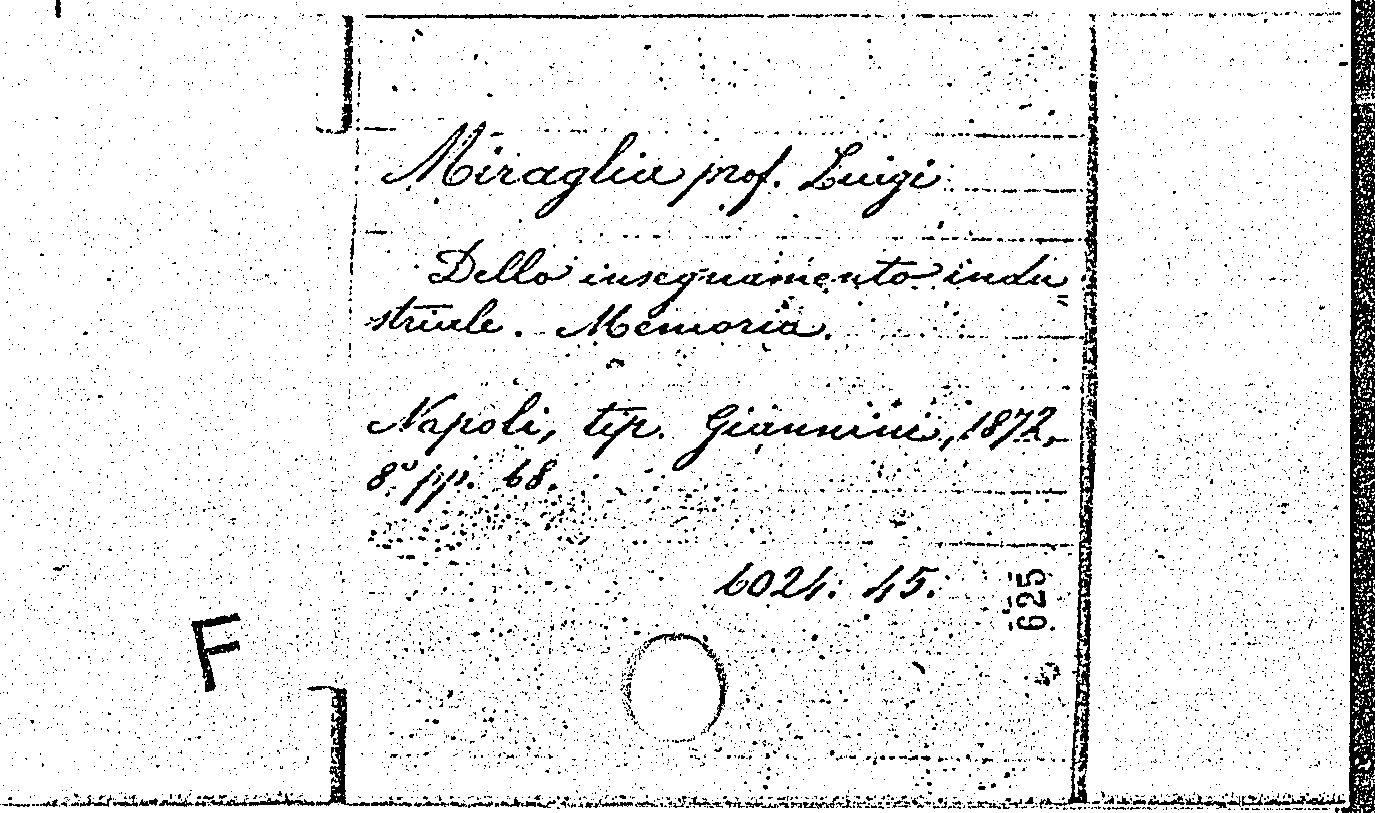 Miraglia prof. Luigi
Dello insegnamento indu
striale. Memoria.
Napoli, tip. Giannini, 1872,
8º pp. 68.
6024. 45.
625
F